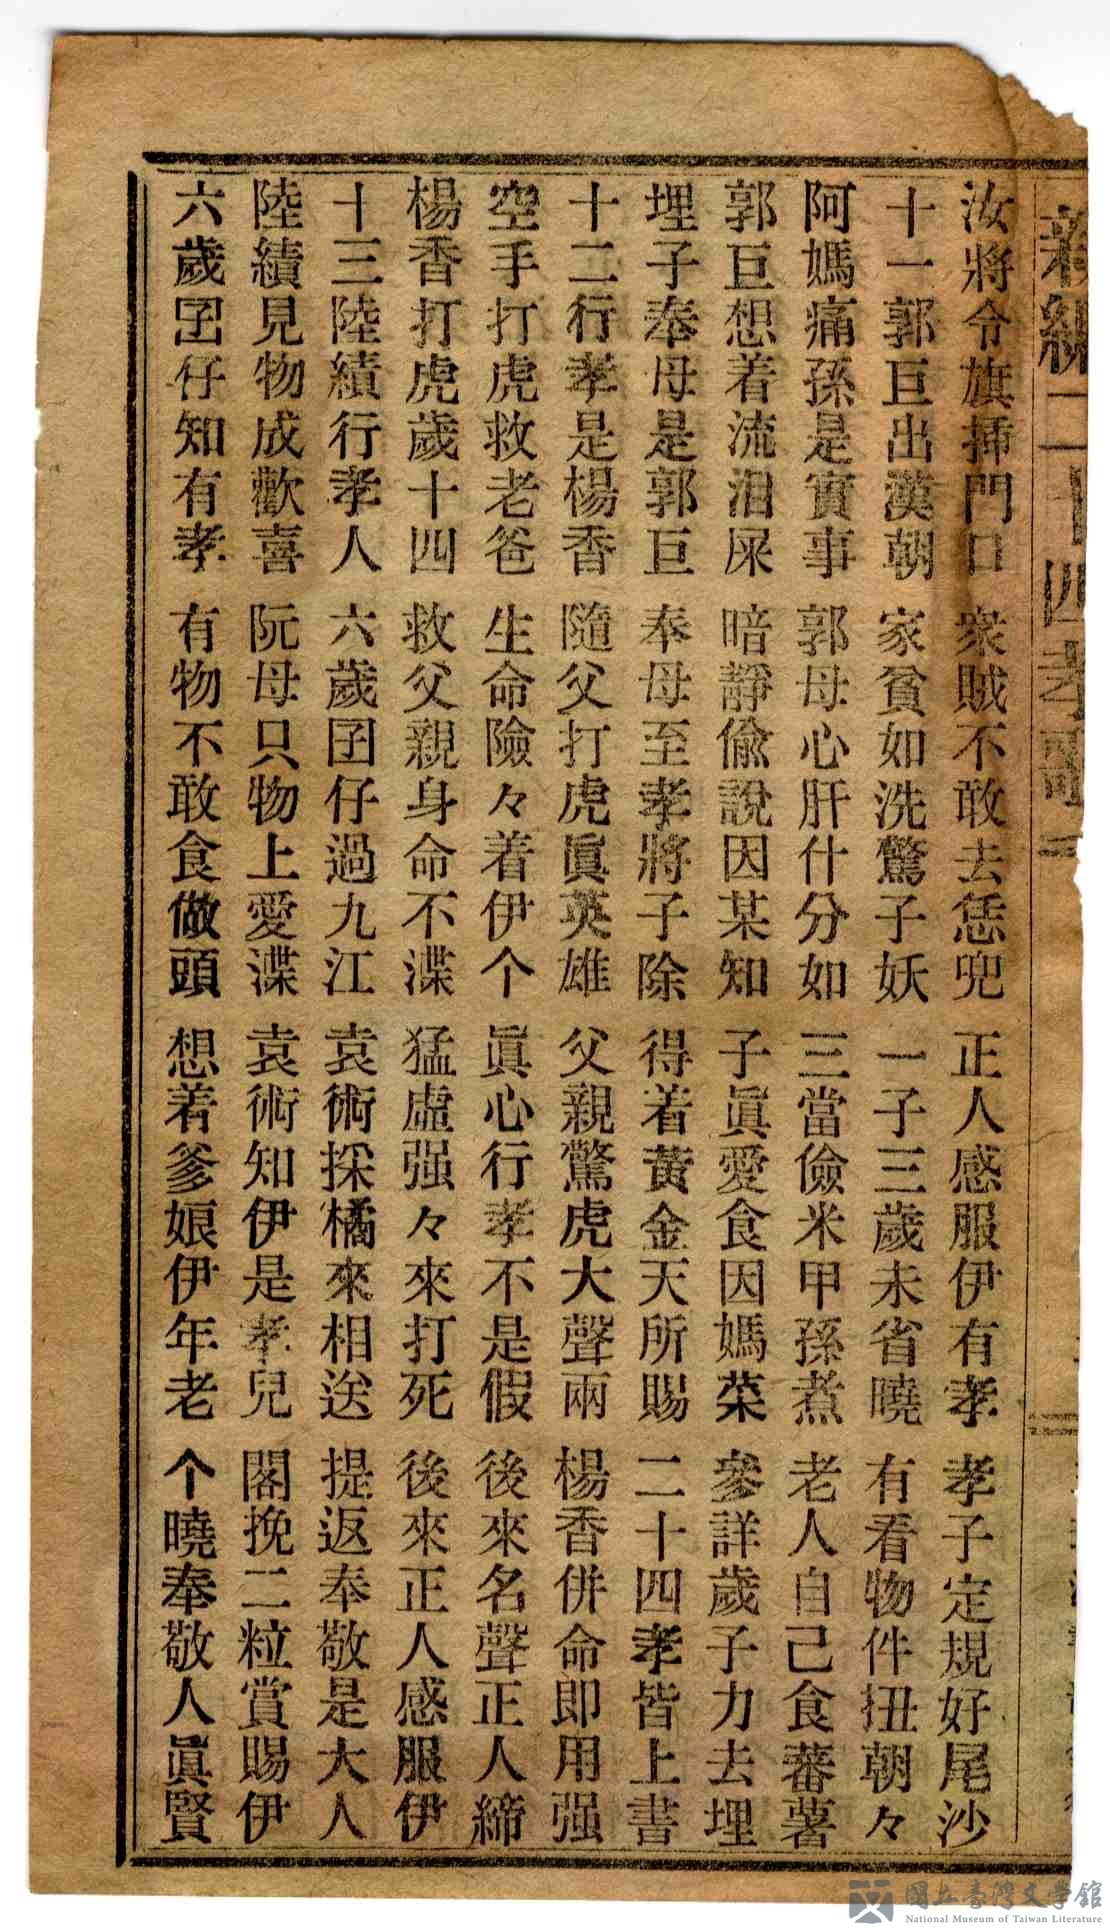 新編二十四孝歌
汝將令旗插門口 衆賊不敢去恁兜 正人感服伊有孝 孝子定規好尾沙
十一郭巨出漢朝 家貧如洗驚子妖 一子三歲未省曉 有看物件扭朝々
阿媽痛孫是實事 郭母心肝什分如 三當儉米甲孫煮 老人自己食蕃薯
郭巨想着流泪屎 暗靜偸說因某知 子眞愛食因媽菜 參詳歲子力去埋
埋子奉母是郭巨 奉母至孝將子除 得着黃金天所賜 二十四孝皆上書
十二行孝是楊香 隨父打虎眞英雄 父親驚虎大聲兩 楊香併命即用强
空手打虎救老爸 生命險々着伊个 眞心行孝不是假 後來名聲正人締
楊香打虎歲十四 救父親身命不渫 猛虛强々來打死 後來正人感服伊
十三陸績行孝人 六歲囝仔過九江 袁術採橘來相送 提返奉敬是大人
陸績見物成歡喜 阮母只物上愛渫 袁術知伊是孝兒 閣挽二粒賞賜伊
六歲囝仔知有孝 有物不敢食做頭 想着爹娘伊年老 个曉奉敬人眞賢
國立臺灣文學館
National Museum of Taiwan Literature